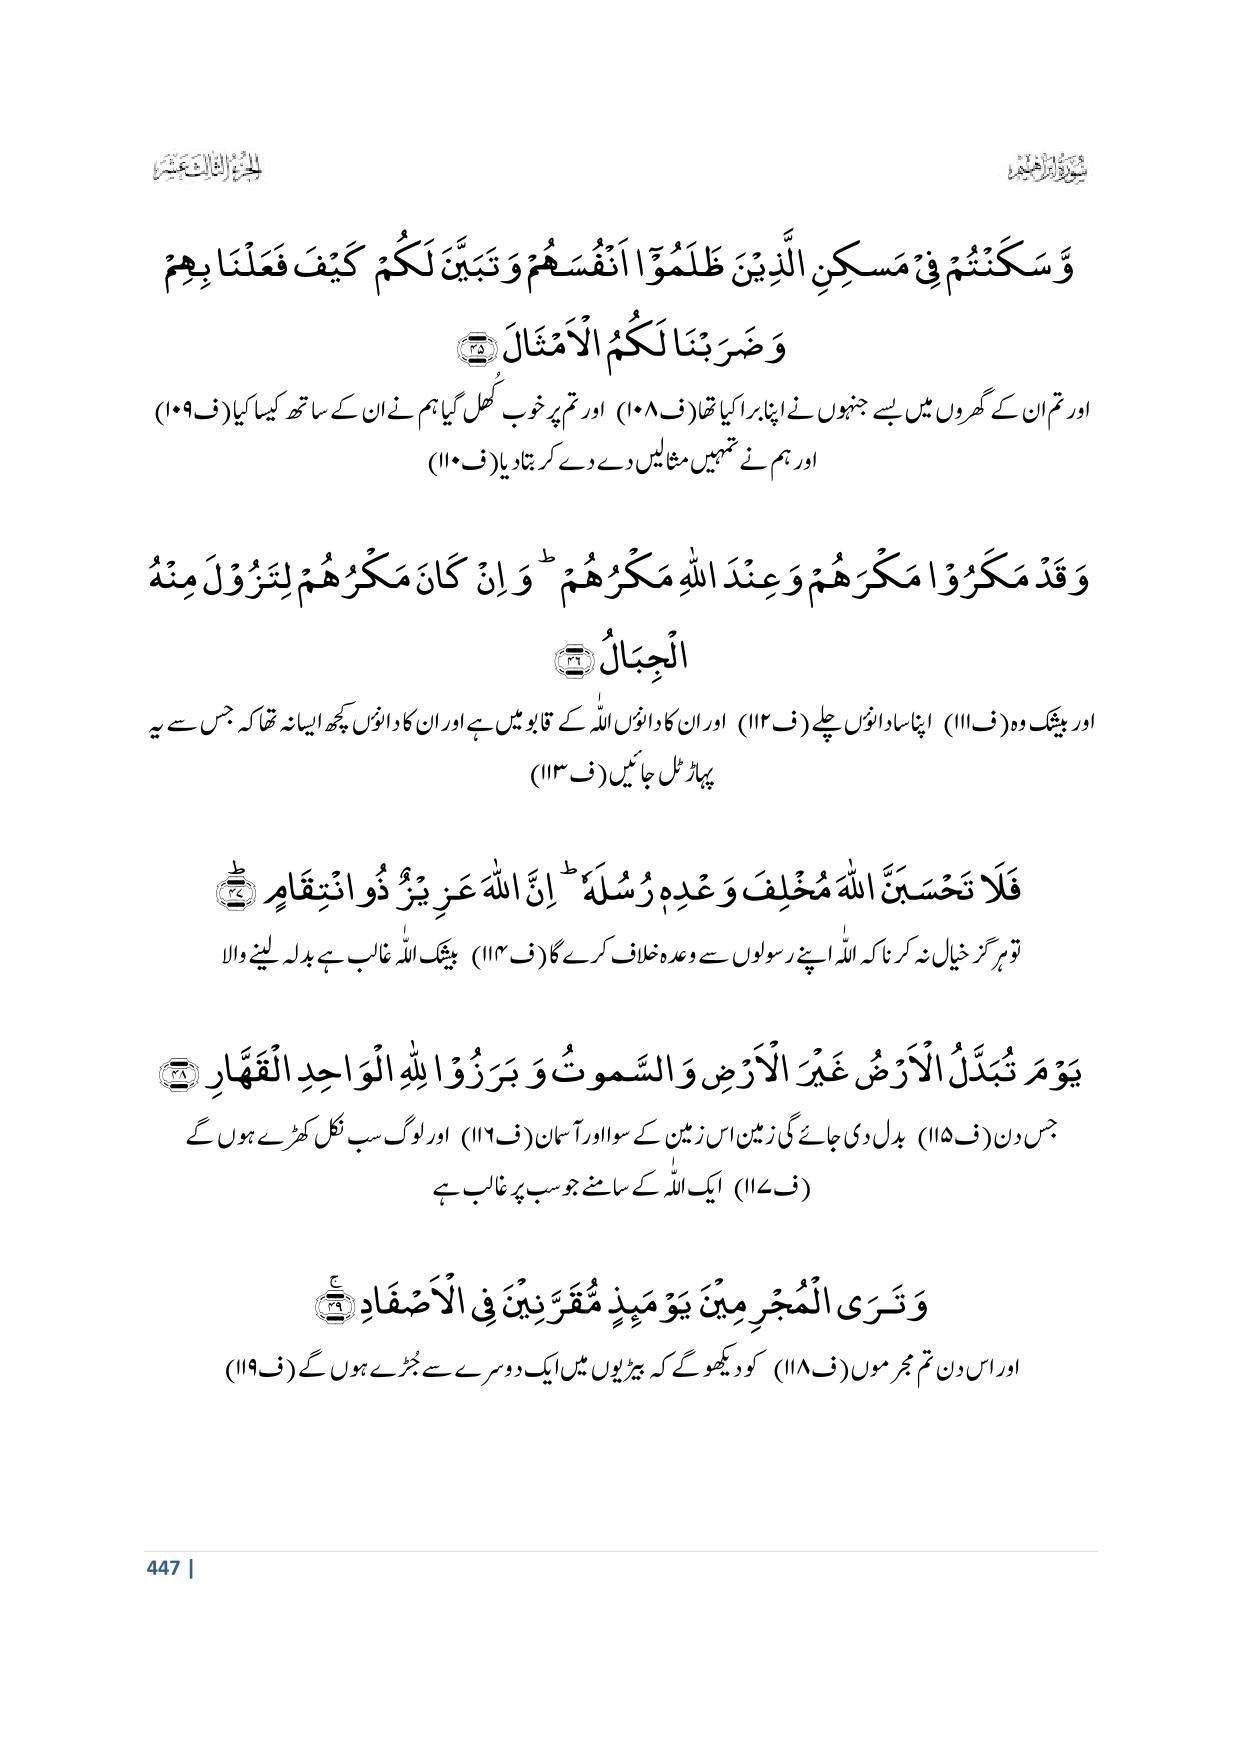 سورة ابراهيم
الجزء الثالث عشر
وَّ سَكَنْتُمْ فِیْ مَسٰكِنِ الَّذِیْنَ ظَلَمُوْۤا اَنْفُسَهُمْ وَ تَبَیَّنَ لَكُمْ كَیْفَ فَعَلْنَا بِهِمْ
وَ ضَرَبْنَا لَكُمُ الْاَمْثَالَ ﴿۴۵﴾
اور تم ان کے گھروں میں بسے جنہوں نے اپنا برا کیا تھا (ف۱۰۸) اور تم پر خوب کُھل گیا ہم نے ان کے ساتھ کیسا کیا (ف۱۰۹)
اور ہم نے تمہیں مثالیں دے دے کر بتا دیا (ف۱۱۰)
وَ قَدْ مَكَرُوْا مَكْرَهُمْ وَ عِنْدَ اللّٰهِ مَكْرُهُمْ ؕ وَ اِنْ كَانَ مَكْرُهُمْ لِتَزُوْلَ مِنْهُ
الْجِبَالُ ﴿۴۶﴾
اور بیشک وہ (ف۱۱۱) اپنا سا دانؤں چلے (ف۱۱۲) اور ان کا دانؤں اللہ کے قابو میں ہے اور ان کا دانؤں کچھ ایسا نہ تھا کہ جس سے یہ
پہاڑ ٹل جائیں (ف۱۱۳)
فَلَا تَحْسَبَنَّ اللّٰهَ مُخْلِفَ وَعْدِهٖ رُسُلَهٗ ؕ اِنَّ اللّٰهَ عَزِیْزٌ ذُو انْتِقَامٍ ﴿ؕ۴۷﴾
تو ہرگز خیال نہ کرنا کہ اللہ اپنے رسولوں سے وعدہ خلاف کرے گا (ف۱۱۴) بیشک اللہ غالب ہے بدلہ لینے والا
یَوْمَ تُبَدَّلُ الْاَرْضُ غَیْرَ الْاَرْضِ وَ السَّمٰوٰتُ وَ بَرَزُوْا لِلّٰهِ الْوَاحِدِ الْقَهَّارِ ﴿۴۸﴾
جس دن (ف۱۱۵) بدل دی جائے گی زمین اس زمین کے سوا اور آسمان (ف۱۱۶) اور لوگ سب نکل کھڑے ہوں گے
(ف۱۱۷) ایک اللہ کے سامنے جو سب پر غالب ہے
وَ تَرَی الْمُجْرِمِیْنَ یَوْمَىِٕذٍ مُّقَرَّنِیْنَ فِی الْاَصْفَادِ ﴿ۚ۴۹﴾
اور اس دن تم مجرموں (ف۱۱۸) کو دیکھو گے کہ بیڑیوں میں ایک دوسرے سے جُڑے ہوں گے (ف۱۱۹)
447 |